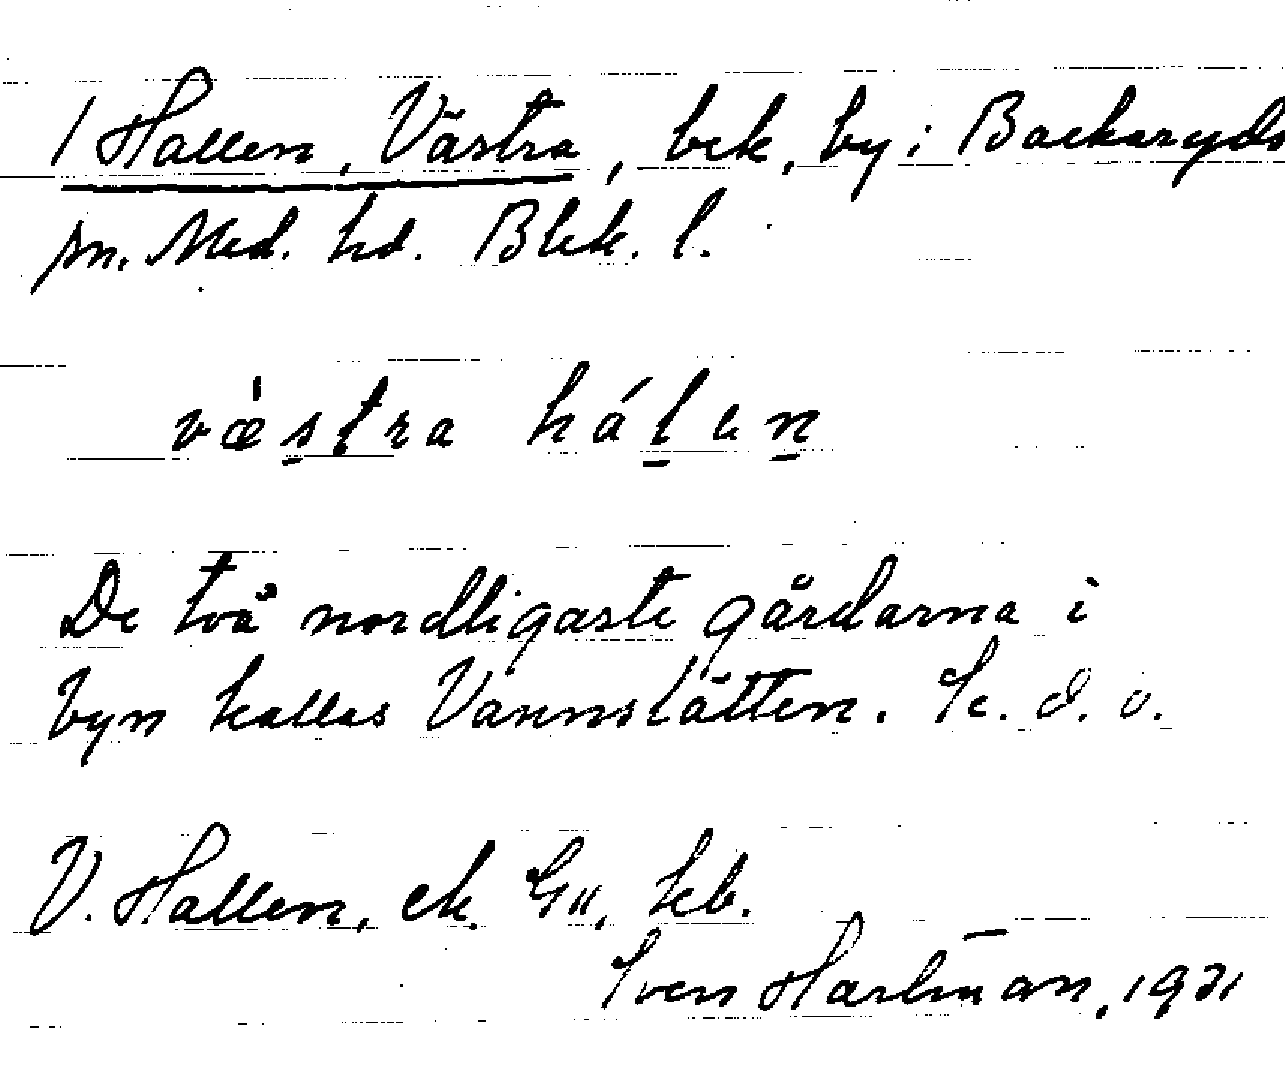 1 Hallen, Västra, bek, by i Backaryds
sn. Med. hd. Blek. l.
væ̀stra hálen
De två nordligaste gårdarna i
byn kallas Vannslätten. Se. d. o.
V. Hallen, ek. GII, kb.
Sven Harlman, 1931